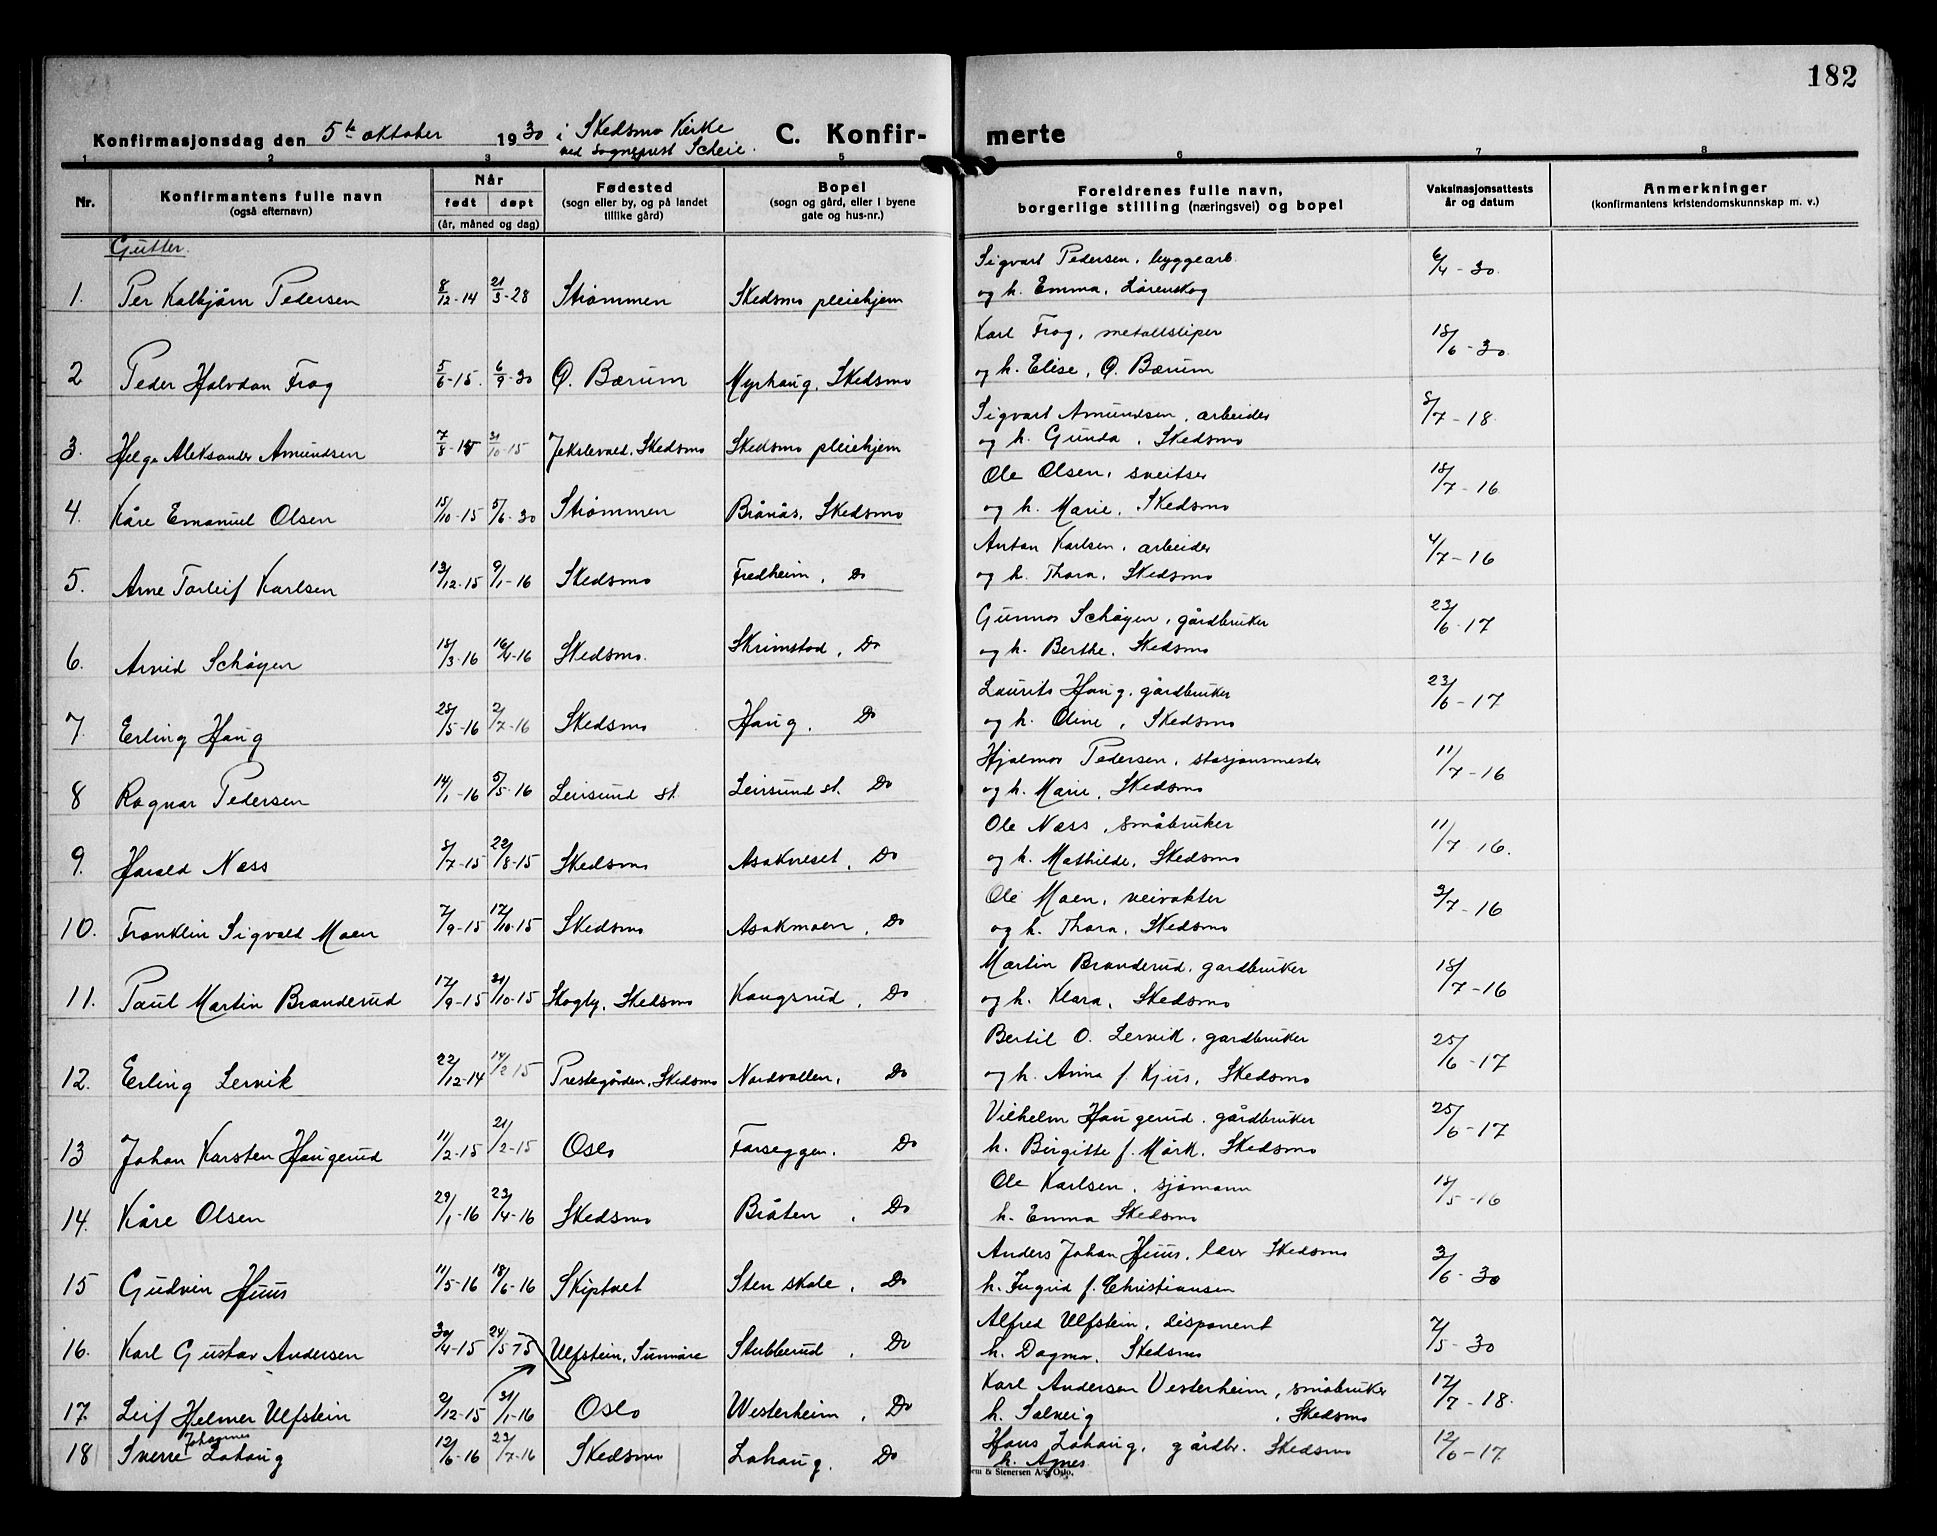 182
Konfirmasjonsdag den 5te oktober 1930 i Skedsmo Kirke C. Konfir- merte
ved sogneprest Scheie.
1 2 3 5 6 7 8
Nr. Konfirmantens fulle navn (også efternavn) Når født døpt (år, måned og dag) Fødested (sogn eller by, og på landet tillike gård) Bopel (sogn og gård, eller i byene gate og hus-nr.) Foreldrenes fulle navn, borgerlige stilling (næringsvei) og bopel Vaksinasjonsattests år og datum Anmerkninger (konfirmantens kristendomskunnskap m. v.)
Gutter.
Sigvart Pedersen, byggearb. 6/4-30.
1. Per Kolbjørn Pedersen 8/12-14 21/3-28 Strømmen Skedsmo pleiehjem og h. Emma, Lørenskog
Karl Frog, metallsliper 18/6-30
2 Peder Halvdan Frog 5/6-15. 6/9-30 Ø. Bærum Myrhaug, Skedsmo og h. Elise, Ø. Bærum
Sigvart Amundsen, arbeider 8/7-18.
3. Helge Aleksander Amundsen 7/8-15 31/10-15 Jekslevold, Skedsmo Skedsmo pleiehjem og h. Gunda, Skedsmo
Ole Olsen, sveitser 18/7-16
4. Kåre Emanuel Olsen 15/10-15 5/6-30 Strømmen Brånås, Skedsmo og h. Marie, Skedsmo
Anton Karlsen, arbeider 4/7-16
5. Arne Torleif Karlsen 13/12-15 9/1-16 Skedsmo Fredheim, Do og h. Thora, Skedsmo
Gunnar Schøyen, gårdbruker 23/6-17
6. Arvid Schøyen 18/3-16 16/4-16 Skedsmo. Skrimstad, Do og h. Berthe, Skedsmo
Laurits Haug, gårdbruker 23/6-17
7. Erling Haug 28/5-16 2/7-16 Skedsmo Haug, Do og h. Oline, Skedsmo
Hjalmar Pedersen, stasjonsmester 11/7-16
8 Ragnar Pedersen 14/1-16 5/5-16 Leirsund st. Leirsund st. Do og h. Marie, Skedsmo
Ole Næss, småbruker 11/7-16.
9. Harald Næss 8/7-15 22/8-15 Skedsmo Asakneset, Do og h. Mathilde, Skedsmo
Ole Moen, veivokter 3/7-16
10. Franklin Sigvald Moen 7/9-15 17/10-15 Skedsmo Asakmoen, Do og h. Thora, Skedsmo
Martin Branderud, gardbruker 18/7-16
11. Paul Martin Branderud 17/9-15 31/10-15 Skogly, Skedsmo Kaugsrud, Do og h. Klara, Skedsmo
Bertil O. Lervik, gardbruker 25/6-17
12. Erling Lervik 22/12-14 14/2-15 Prestegården, Skedsmo Nordvollen, Do og h. Anna f. Kjus, Skedsmo
Vilhelm Haugerud, gårdbruker 25/6-17
13 Johan Karsten Haugerud 11/2-15 21/2-15 Oslo Farseggen. Do h. Birgitte f. Mörk, Skedsmo
Ole Karlsen, sjømann 18/5-16
14. Kåre Olsen 29/1-16 23/4-16 Skedsmo Bråten, Do h. Emma Skedsmo
Anders Johan Huus, lærer Skedsmo 3/6-30
15 Gudvin Huus 11/5-16 18/6-16 Skiptvet Sten skole, Do h. Ingrid f. Christiansen
Alfred Ulfstein, disponent 7/5-30
16. Karl Gustav Andersen 30/4-15 24/5-15 Ulfstein, Sunmøre Stubberud, Do h. Dagmar, Skedsmo
Karl Andersen Vesterheim, småbruker 17/7-18.
17. Leif Helmer Ulfstein 2/12-15 31/1-16 Oslo Westerheim, Do h. Solveig, Skedsmo
Johannes Hans Lahaug, gårdbr. Skedsmo 12/6-17.
18 Sverre Lahaug 12/6-16 23/7-16 Skedsmo Lahaug. Do h. Agnes
& Stenersen A/S, Oslo.